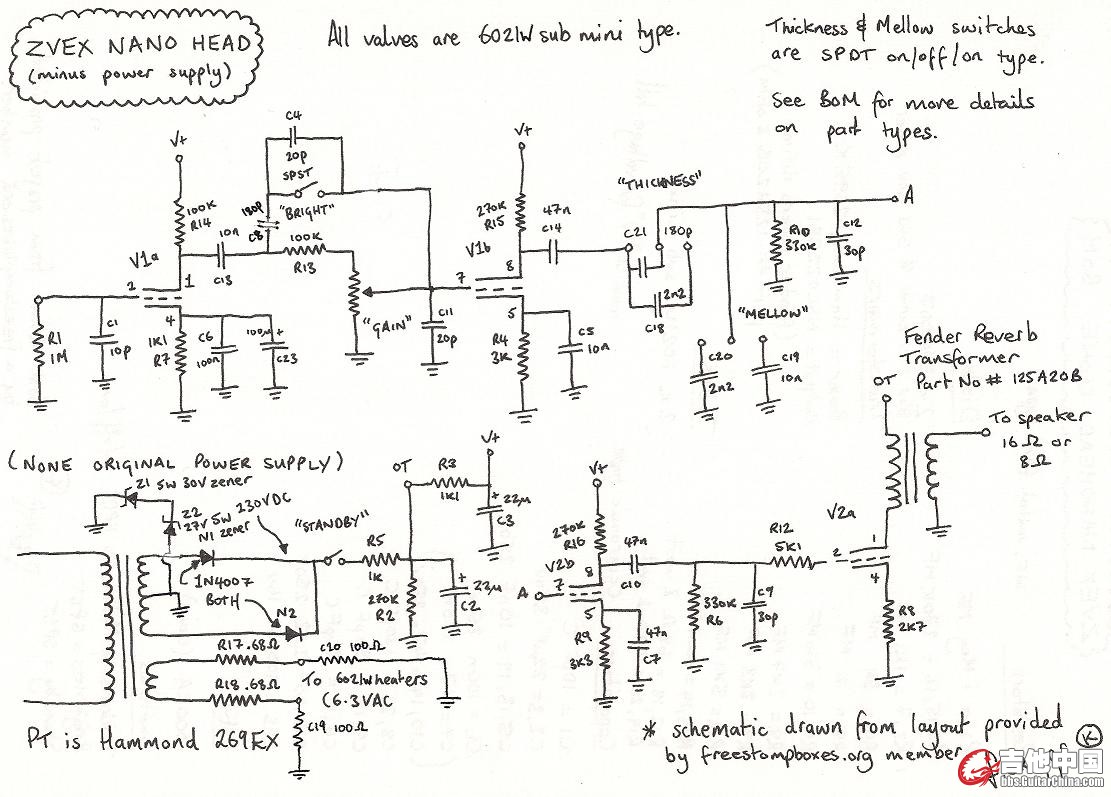 ZVEX NANO HEAD
(minus power supply)
All valves are 6021W sub mini type.
Thickness & Mellow switches
are SPDT on/off/on type.
See BOM for more details
on part types.
V+
100K
R14
V1a
2
1
4
10n
C13
C4
20p
SPST
"BRIGHT"
180p
C8
100K
R13
"GAIN"
R1
1M
C1
10p
1K1
R7
C6
100n
100µ +
C23
V+
270K
R15
V1b
7
8
5
C11
20p
R4
3K
C5
10n
47n
C14
"THICKNESS"
C21
180p
2n2
C18
"MELLOW"
C20
2n2
C19
10n
R10
330K
C12
30p
A
Fender Reverb
Transformer
Part No # 125A20B
OT
To speaker
16Ω or
8Ω
(NONE ORIGINAL POWER SUPPLY)
Z1 5W 30V zener
Z2
27V 5W
zener
N1
230VDC
"STANDBY"
1N4007
BOTH
N2
R5
1K
OT
R3
1K1
V+
+
22µ
C3
270K
R2
+
22µ
C2
R17 .68Ω
C20 100Ω
To 6021W heaters
(6.3VAC
R18 .68Ω
C19 100Ω
PT is Hammond 269EX
V+
270K
R16
V2b
A
7
8
5
47n
C10
R9
3K3
47n
C7
330K
R6
C9
30p
R12
5K1
V2a
2
1
4
R8
2K7
* schematic drawn from layout provided
by freestompboxes.org member
K
吉他中国
bbs.GuitarChina.com